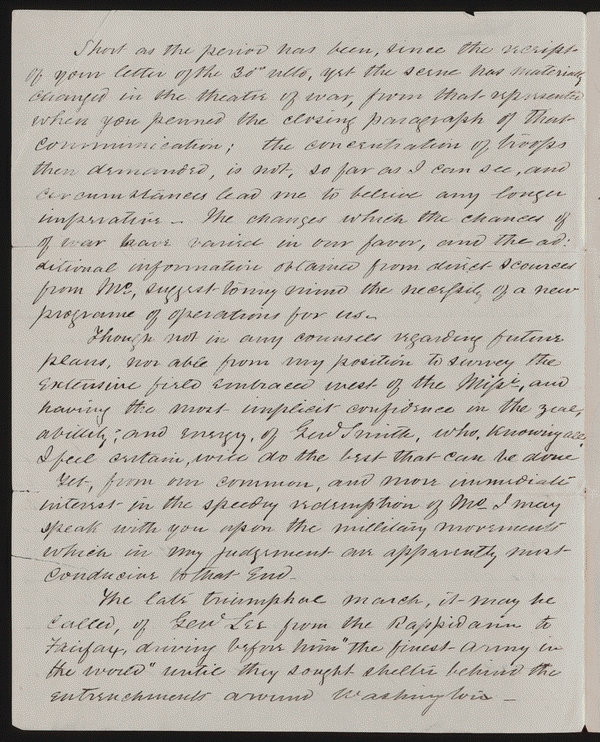 Short as the period has been, since the receipt
of your letter of the 30" ulto, yet the scene has materially
changed in the theatre of war, from that represented
when you penned the closing paragraph of that
communication; the concentration of troops
then demanded, is not, so far as I can see, and
circumstances lead me to beleive any longer
imperative - The changes which the chances of
of war have varied in our favor, and the ad:
ditional information obtained from direct scources
from Mo, suggest to my mind the necessity of a new
programe of operations for us.
Though not in any counsels regarding future
plans, nor able from my position to survey the
extensive field embraced west of the Missi, and
having the most implicit confidence in the zeal,
ability, and energy, of Genl Smith, who, knowing all,
I feel certain, will do the best that can be done
Yet, from our common, and more immediate
interest in the speedy redemption of Mo I may
speak with you upon the millitary movements
which in my judgement are apparently most
conducive to that End -
The late triumphal march, it may be
called, of Genl Lee from the Rappidann to
Fairfax, driving before him "the finest army in
the world" until they sought shelter behind the
entrenchments around Washington -